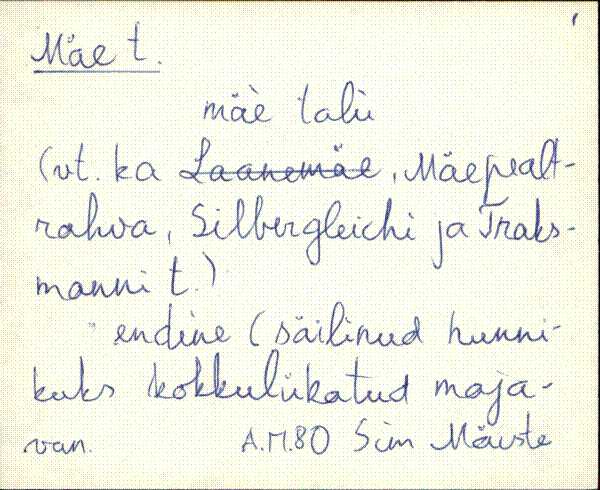 Mäe t.
mäè talù
(vt. ka Laanemäe, Mäepealt-
rahva, Silbergleichi ja Traks-
manni t.)
endine (säilinud hunni-
kuks kokkulükatud maja-
van. A.M.80 Sim Mäiste